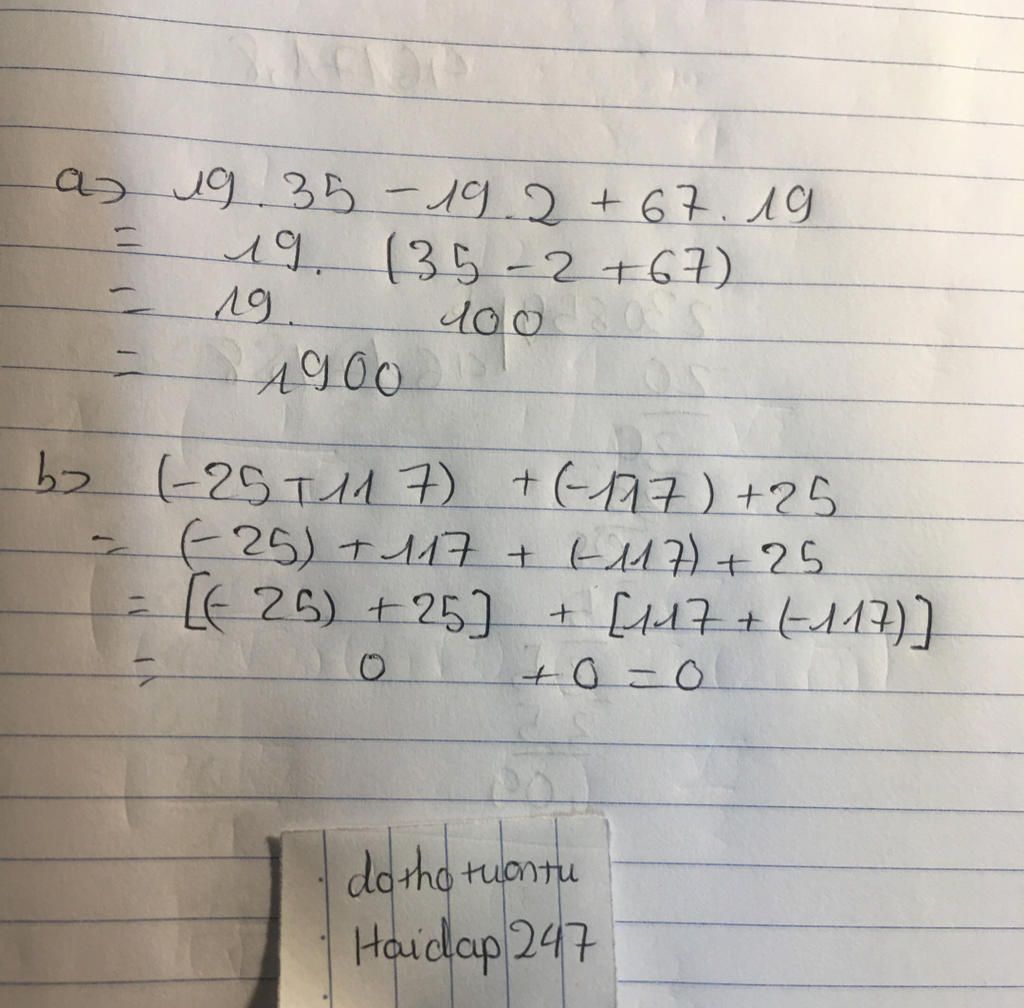 a> 19 . 35 - 19 . 2 + 67 . 19
= 19 . (35 - 2 + 67)
= 19 . 100
= 1900
b> (-25 + 117) + (-117) + 25
= (-25) + 117 + (-117) + 25
= [(-25) + 25] + [117 + (-117)]
= 0 + 0 = 0
dothotuantu
Hoidap 247